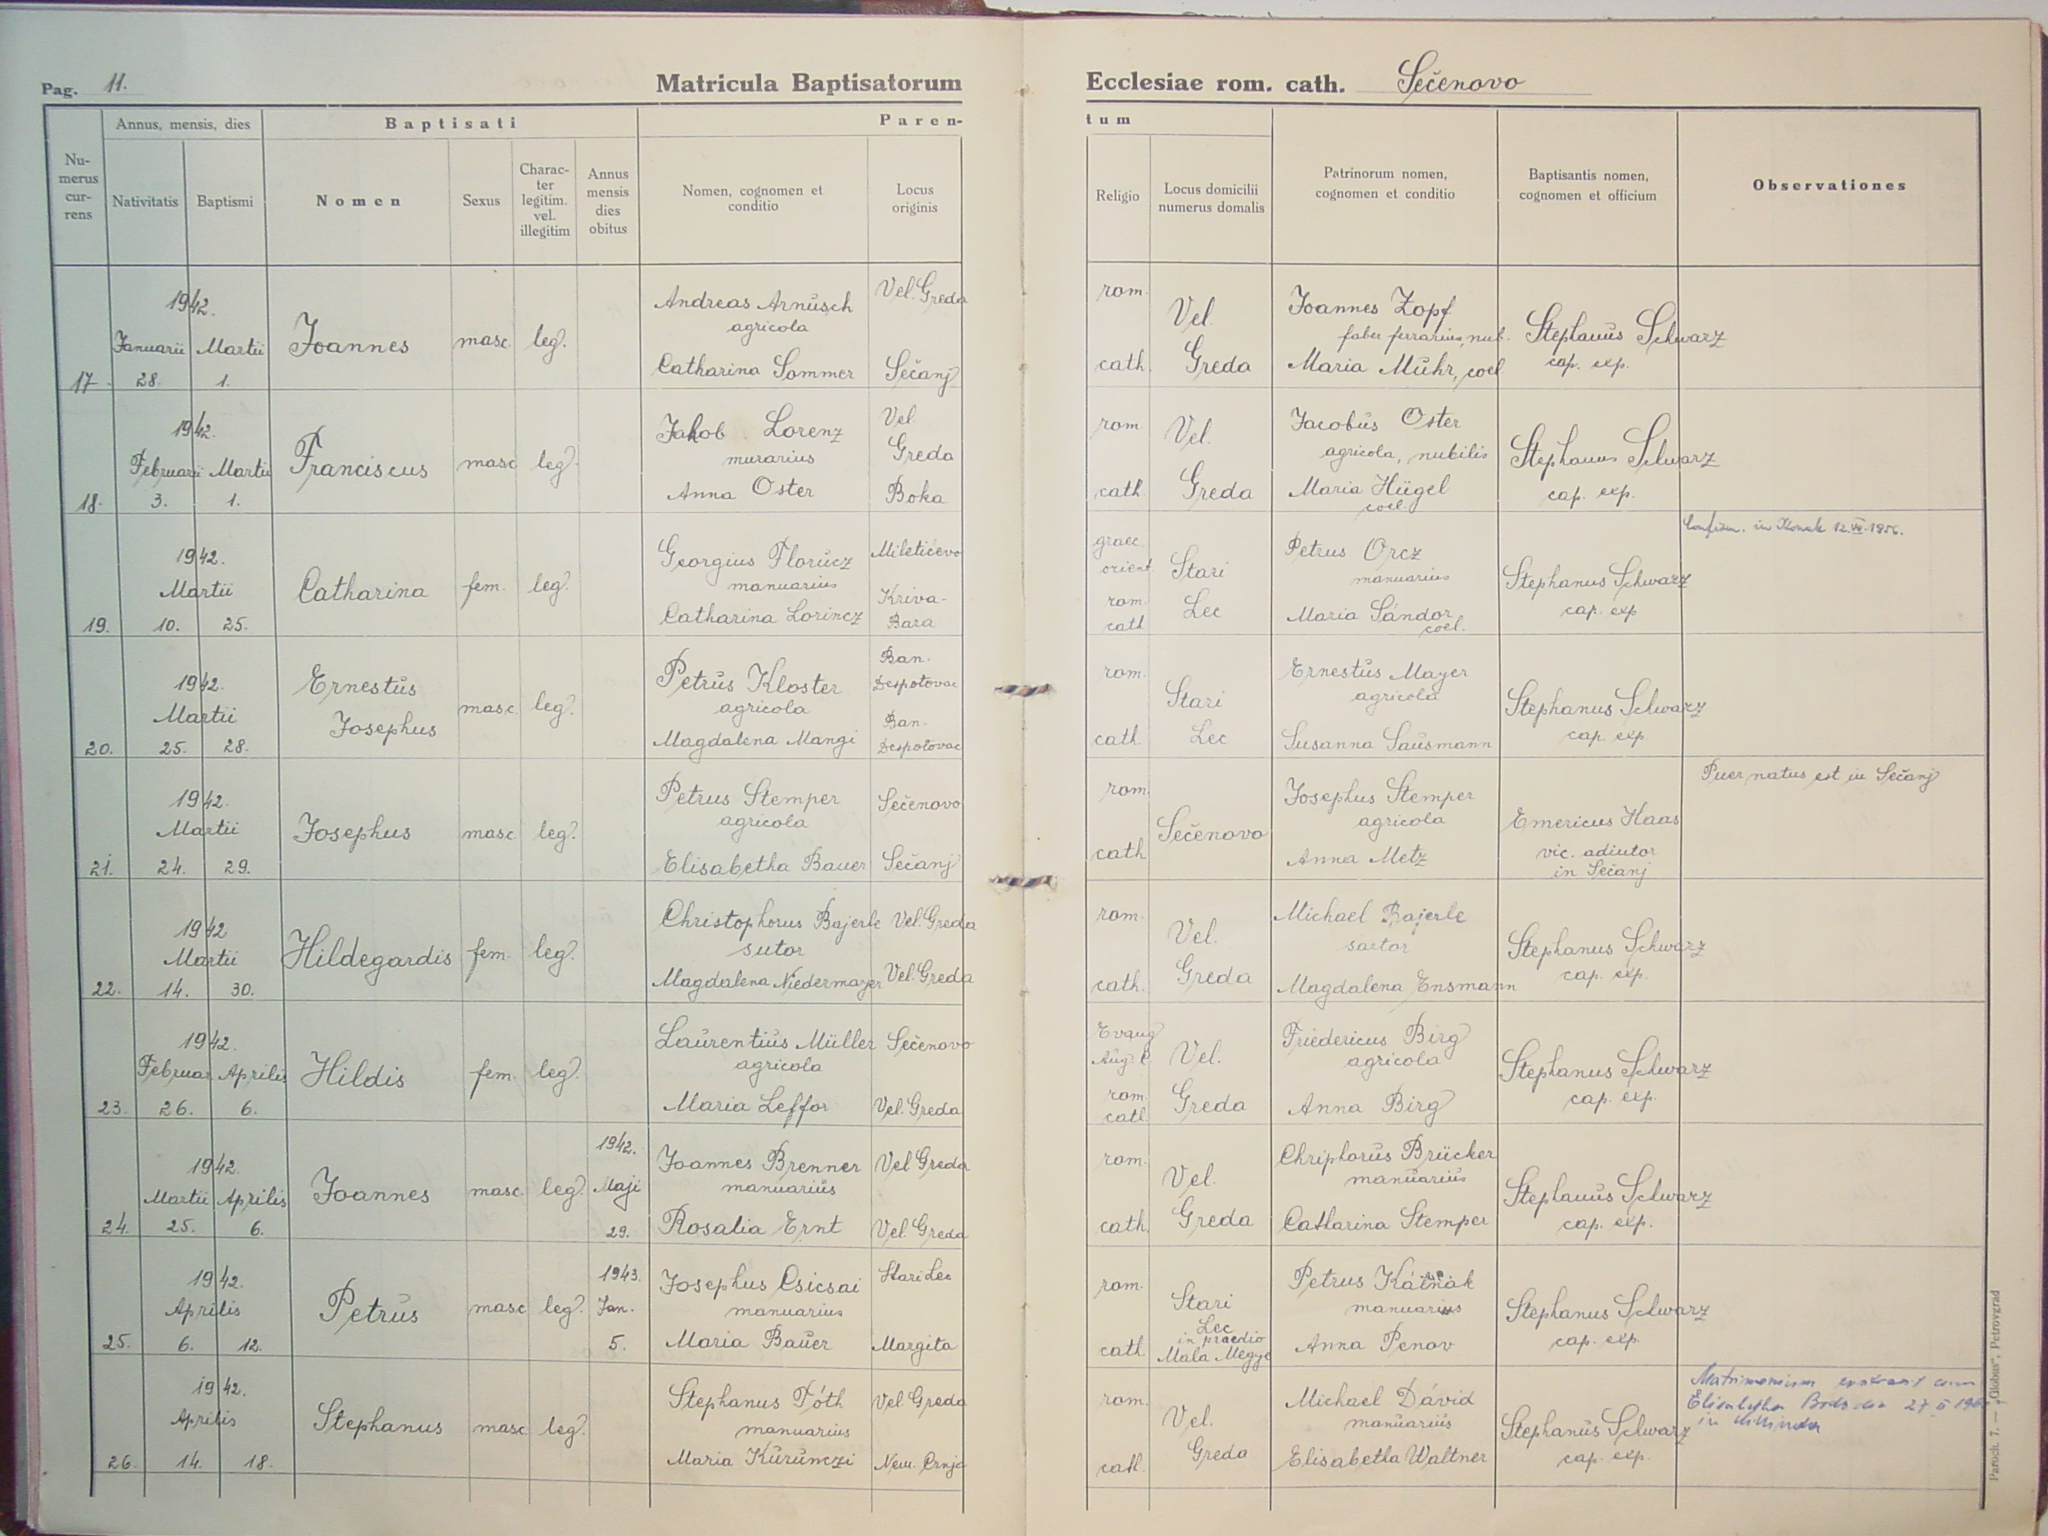 Pag. 11. Matricula Baptisatorum Ecclesiae rom. cath. Sečenovo
Numerus currens
Annus, mensis, dies
Nativitatis
Baptismi
Baptisati
Nomen
Sexus
Charac-
ter
legitim.
vel.
illegitim
Annus
mensis
dies
obitus
Paren-
tum
Nomen, cognomen et
conditio
Locus
originis
Religio
Locus domicilii
numerus domalis
Patrinorum nomen,
cognomen et conditio
Baptisantis nomen,
cognomen et officium
Observationes
17 1942. Januarii 28. Martii 1. Joannes masc. leg.
Andreas Arnusch Vel. Greda
agricola
Catharina Sommer Sečanj
rom. cath. Vel. Greda
Joannes Zopf
faber ferrarius, nub.
Maria Muhr, coel
Stephanus Schwarz
cap. exp.
18. 1942. Februarii 3. Martii 1. Franciscus masc leg.
Jakob Lorenz Vel. Greda
murarius
Anna Oster Boka
rom cath. Vel. Greda
Jacobus Oster
agricola, nubilis
Maria Hügel
coel.
Stephanus Schwarz
cap. exp.
19. 1942. Martii 10. 25. Catharina fem. leg.
Georgius Florucz Miletićevo
manuarius
Catharina Lorincz Kriva-Bara
graec. orient. rom. cath Stari Lec
Petrus Orcz
manuarius
Maria Sándor
coel.
Stephanus Schwarz
cap. exp
Confirm. in Konak 12.VI.1956.
20. 1942. Martii 25. 28. Ernestus Josephus masc. leg.
Petrus Kloster Ban. Despotovac
agricola
Magdalena Mangi Ban. Despotovac
rom. cath. Stari Lec
Ernestus Mayer
agricola
Susanna Sausmann
Stephanus Schwarz
cap. exp.
21. 1942. Martii 24. 29. Josephus masc leg.
Petrus Stemper Sečenovo
agricola
Elisabetha Bauer Sečanj
rom. cath Sečenovo
Josephus Stemper
agricola
Anna Metz
Emericus Haas
vic. adiutor
in Sečanj
Puer natus est in Sečanj
22. 1942 Martii 14. 30. Hildegardis fem. leg.
Christophorus Bajerle Vel. Greda
sutor
Magdalena Niedermayer Vel. Greda
rom. cath. Vel. Greda
Michael Bajerle
sartor
Magdalena Ensmann
Stephanus Schwarz
cap. exp.
23. 1942. Februar 26. Aprilis 6. Hildis fem. leg.
Laurentius Müller Sečenovo
agricola
Maria Leffor Vel. Greda
Evang. Aug. C. rom. cath Vel. Greda
Friedericus Birg
agricola
Anna Birg
Stephanus Schwarz
cap. exp.
24. 1942. Martii 25. Aprilis 6. Joannes masc. leg. 1942. Maji 29.
Joannes Brenner Vel Greda
manuarius
Rosalia Ernt Vel. Greda
rom. cath. Vel. Greda
Chriphorus Brücker
manuarius
Catharina Stemper
Stephanus Schwarz
cap. exp.
25. 1942. Aprilis 6. 12. Petrus masc leg. 1943. Jan. 5.
Josephus Csicsai Stari Lec
manuarius
Maria Bauer Margita
rom. cath. Stari Lec
in praedio
Mala Megye
Petrus Kátnak
manuarius
Anna Penov
Stephanus Schwarz
cap. exp.
26. 1942. Aprilis 14. 18. Stephanus masc. leg.
Stephanus Tóth Vel Greda
manuarius
Maria Kurunczi Nem. Crnja
rom. cath. Vel. Greda
Michael Dávid
manuarius
Elisabetha Waltner
Stephanus Schwarz
cap. exp.
Matrimonium cum
Elisabetha 27
in
Paroch. 7. — „Globus", Petrovgrad